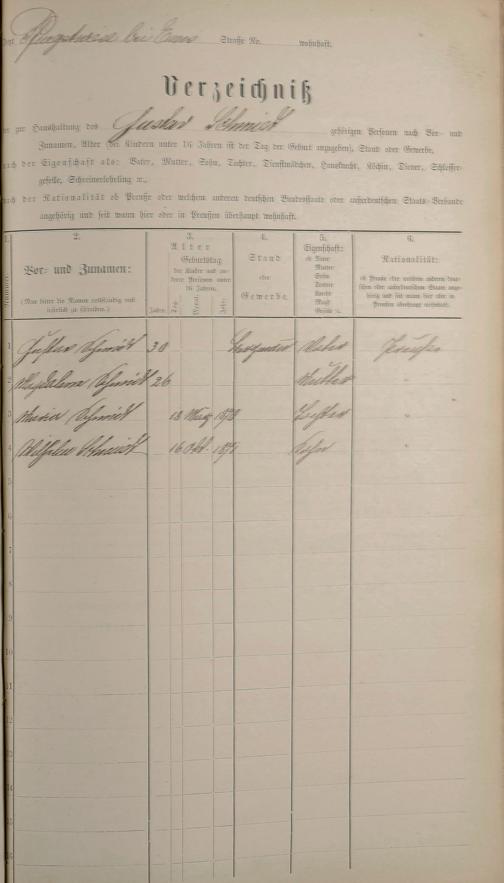 bei Ems Straße Nr. wohnhaft.
Verzeichniß
zur Haushaltung des Gustav Schmidt gehörigen Personen nach Vor- und
Zunamen, Alter (bei Kindern unter 16 Jahren ist der Tag der Geburt anzugeben), Stand oder Gewerbe,
nach der Eigenschaft als: Vater, Mutter, Sohn, Tochter, Dienstmädchen, Hausknecht, Köchin, Diener, Schlosser-
geselle, Schreinerlehrling ꝛc.,
nach der Nationalität ob Preuße oder welchem anderen deutschen Bundesstaate oder außerdeutschen Staats-Verbande
angehörig und seit wann hier oder in Preußen überhaupt wohnhaft.
1. 2. 3. 4. 5. 6.
Vor- und Zunamen:
(Man bittet die Namen vollständig und leserlich zu schreiben.)
Alter
Geburtstag
der Kinder und anderer Personen unter 16 Jahren.
Jahre Tag Monat Jahr
Stand
oder
Gewerbe.
Eigenschaft:
ob Vater
Mutter
Sohn
Tochter
Knecht
Magd
Geselle ꝛc.
Nationalität:
1 Gustav Schmidt 30 Bergmann Vater Preuße
2 Magdalena Schmidt 26 Mutter "
3 Maria Schmidt 18 März Tochter "
4 Wilhelm Schmidt 16 Okt. Sohn "
5
6
7
8
9
10
11
12
13
14
15
16